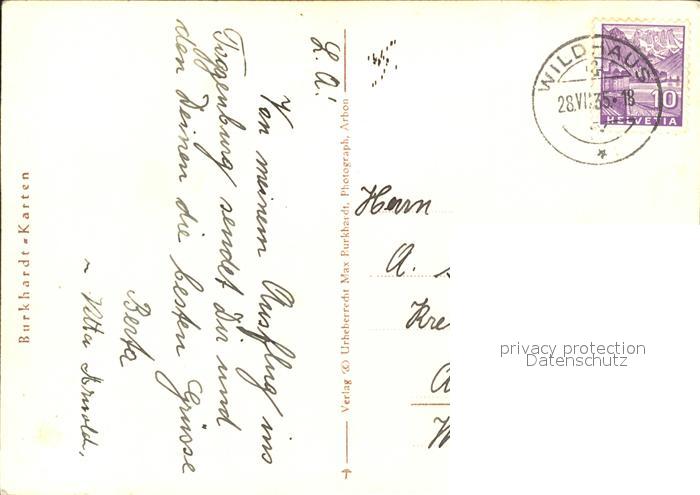 L. A!
Von meinem Ausflug ins
Toggenburg sendet Dir und
den Deinen die besten Grüsse
Berta
Arnold.
Burkhardt-Karten
Verlag & Urheberrecht Max Burkhardt, Photograph, Arbon
WILDHAUS
28.VI.35-18
10
HELVETIA
Herrn
A.
Kre
privacy protection
Datenschutz